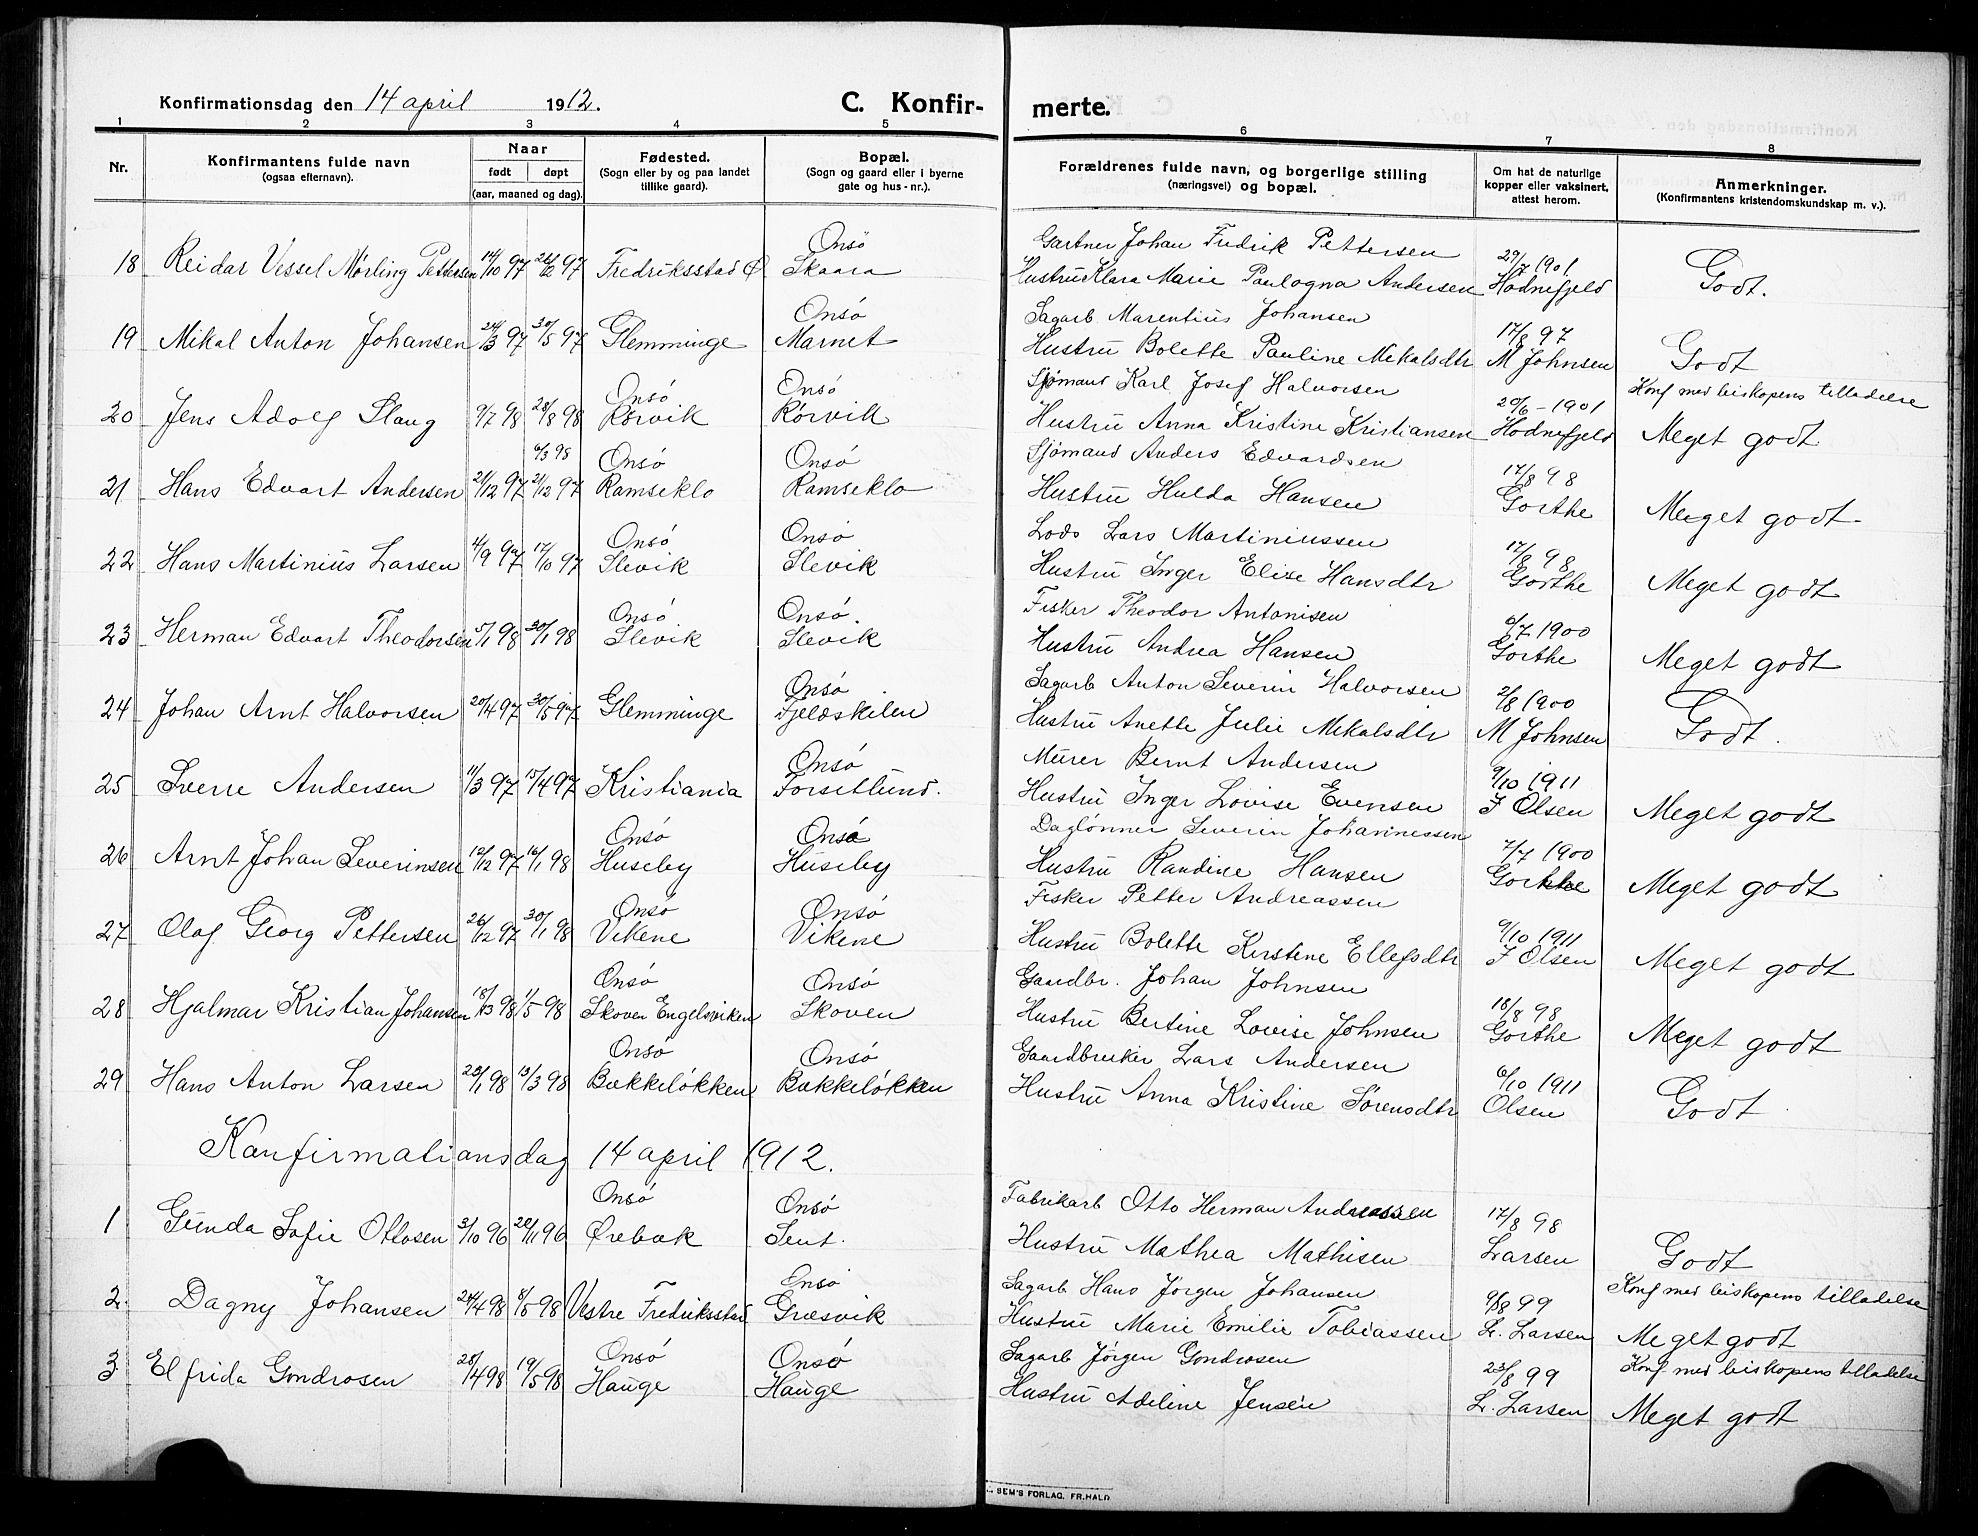 Konfirmationsdag den 14 april 1912.
C. Konfirmerte.
1 2 3 4 5 6 7 8
Nr.
Konfirmantens fulde navn
(ogsaa efternavn).
Naar
født døpt
(aar, maaned og dag).
Fødested.
(Sogn eller by og paa landet
tillike gaard).
Bopæl.
(Sogn og gaard eller i byerne
gate og hus-nr.).
Forældrenes fulde navn, og borgerlige stilling
(næringsvei) og bopæl.
Om hat de naturlige
kopper eller vaksinert,
attest herom.
Anmerkninger.
(Konfirmantens kristendomskundskap m. v.).
Onsö Gartner Johan Fredrik Pettersen 29/7 1901
18 Reidar Vessel Mørling Pettersen 14/10 97 26/12 97 Fredriksstad Ø Skaara Hustru Klara Marie Paulogna Andersen Hodnefjeld Godt.
Onsö Sagarb. Marentius Johansen 17/8 97
19 Mikal Anton Johansen 24/3 97 30/5 97 Glemminge Marnet Hustru Bolette Pauline Mekalsdtr M Johnsen Godt
Onsö Onsö Sjømand Karl Josef Halvorsen 20/6-1901 Konf med biskopens tilladelse
20 Jens Adolf Slaug 9/7 98 28/8 98 Rørvik Rørvik Hustru Anna Kristine Kristiansen Hodnefjeld Meget godt.
6/3 98 Onsö Onsö Sjømand Anders Edvardsen 17/8 98
21 Hans Edvart Andersen 21/12 97 21/12 97 Ramseklo Ramseklo Hustru Hulda Hansen Gorthe Meget godt.
Onsö Onsö Lods Lars Martiniussen 17/8 98
22 Hans Martinius Larsen 4/9 97 17/10 97 Slevik Slevik Hustru Inger Elise Hansdtr Gorthe Meget godt
Onsö Onsö. Fisker Theodor Antonisen 6/7 1900
23 Herman Edvart Theodorsen 5/1 98 30/1 98 Slevik Slevik Hustru Andrea Hansen Gorthe Meget godt
Onsö Sagarb Anton Severin Halvorsen 2/8 1900
24 Johan Arnt Halvorsen 20/4 97 30/5 97 Glemminge Fjeldskilen Hustru Anette Julie Mekalsdtr M Johnsen Godt.
Onsö Murer Bernt Andersen 9/10 1911
25 Sverre Andersen 11/3 97 15/4 97 Kristiania Forsetlund. Hustru Inger Lovise Evensen J Olsen Meget godt
Onsö Onsö Daglønner Severin Johannessen 7/7 1900
26 Arnt Johan Severinsen 12/12 97 16/1 98 Huseby Huseby Hustru Randine Hansen Gorthe Meget godt
Onsö Onsö Fisker Petter Andreassen 9/10 1911
27 Olaf Georg Pettersen 26/12 97 30/1 98 Vikene Vikene Hustru Bolette Kirstine Ellefsdtr J Olsen Meget godt
Onsö Onsö Gaardbr. Johan Johnsen 18/8 98
28 Hjalmar Kristian Johansen 18/3 98 1/5 98 Skoven Engelsviken Skoven Hustru Bertine Lovise Johnsen Gorthe Meget godt
Onsö Onsö Gaardbruker Lars Andersen 6/10 1911
29 Hans Anton Larsen 23/1 98 13/3 98 Bækkeløkken Bækkeløkken Hustru Anna Kristine Sørensdtr Olsen Godt
Konfirmationsdag 14 april 1912.
Onsö Onsö Fabrikarb Otto Herman Andreassen 17/8 98
1 Gunda Sofie Ottosen 3/10 96 20/11 96 Ørebæk Sent. Hustru Mathea Mathisen Larsen Godt
Onsö Sagarb Hans Jørgen Johansen 9/8 99 Konf med biskopens tilladelse
2. Dagny Johansen 24/4 98 8/5 98 Vestre Fredriksstad Græsvik Hustru Marie Emilie Tobiassen L. Larsen Meget godt
Onsö Onsö Sagarb Jørgen Gondrosen 23/8 99 Konf med biskopens tilladelse
3 Elfrida Gondrosen 25/4 98 19/5 98 Hauge Hauge Hustru Adeline Jensen L. Larsen Meget godt
SEM'S FORLAG, FR.HALD